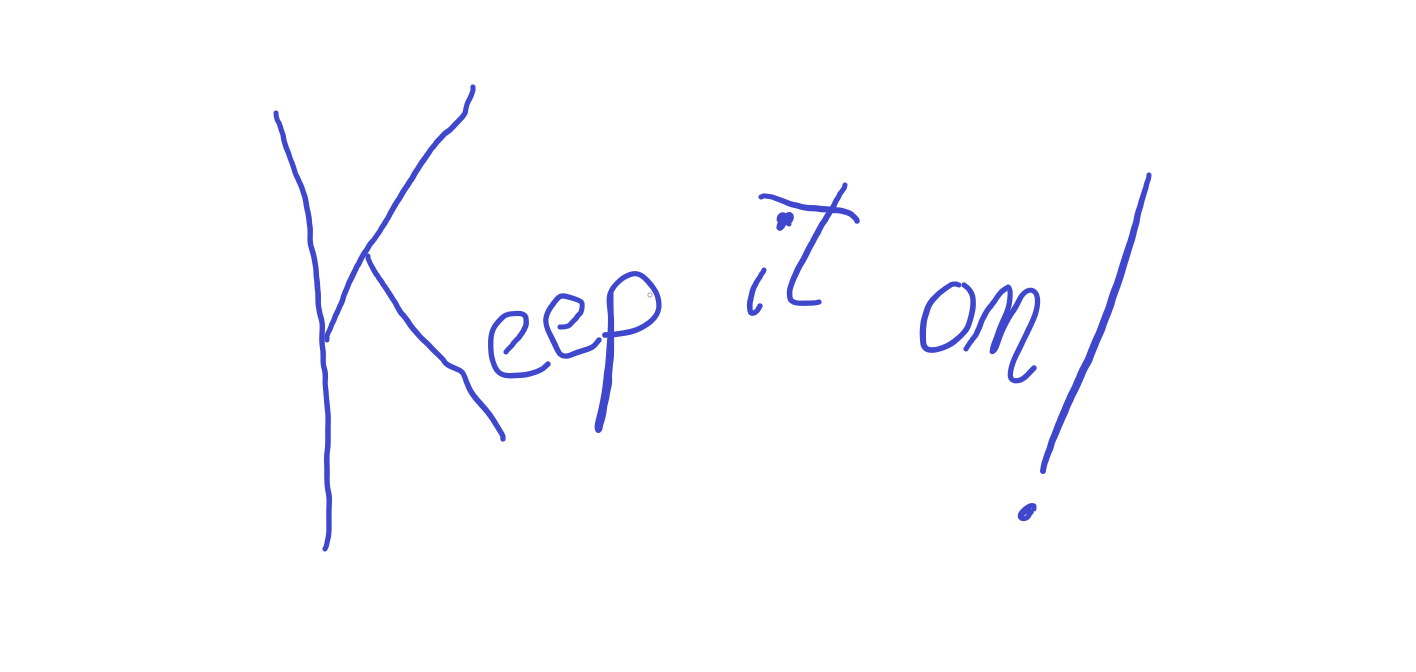 Keep it on!